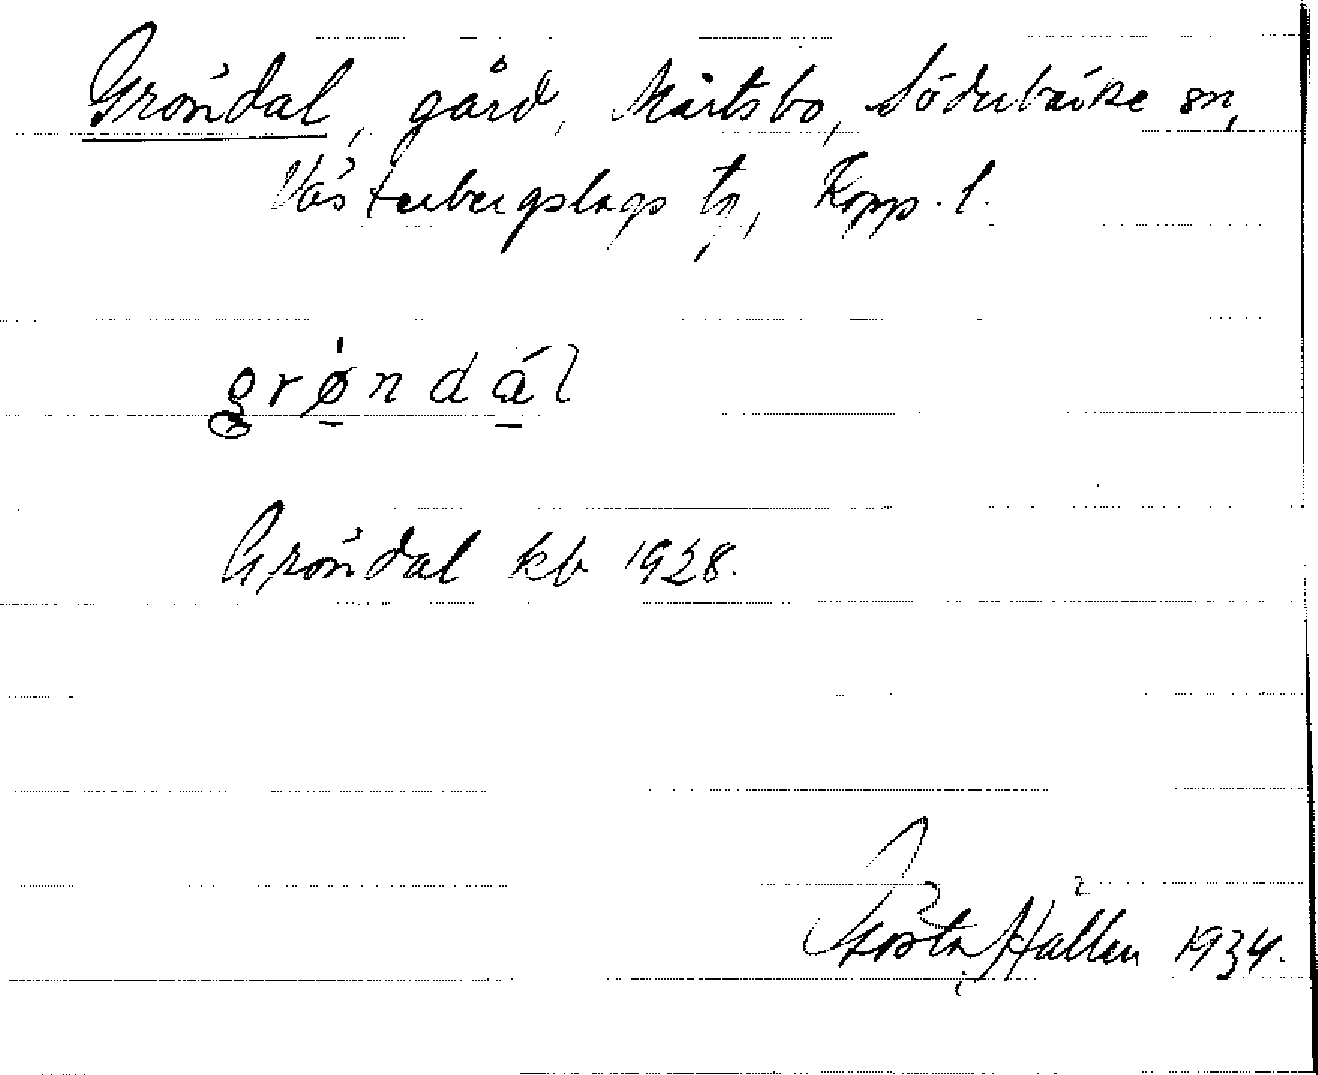 Gröndal, gård, Mårtsbo, Söderbärke sn,
Västerbergslags tg, Kopp. l.
grøndál
Gröndal kb 1928.
Gösta Hällen 1934.